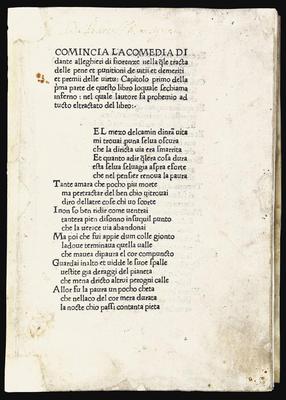 COMINCIA LA COMEDIA DI
dante alleghieri di fiorenze nella q̃le tracta
delle pene et punitioni de uitii et demeriti
et premii delle uirtu: Capitolo primo della
p̃ma parte de questo libro loquale sechiama
inferno: nel quale lautore fa prohemio ad
tucto eltractato del libro:·
EL mezo delcamin dinr̃a uita
mi trouai p̃una selua oscura
che la diricta uia era smarrita
Et quanto adir q̃lera cosa dura
esta selua seluagia aspra eforte
che nel pensier renoua la paura
Tanto amara che pocho piu morte
ma pertractar del ben chio uitrouai
diro dellatre cose chi uo scorte
I non so ben ridir come uentrai
tantera pien disonno insuquil punto
che la uerace uia abandonai
Ma poi che fui appie dum colle gionto
ladoue terminaua quella ualle
che mauea dipaura el cor compuncto
Guardai inalto et uidde le suoe spalle
uestite gia deraggi del pianeta
che mena dricto altrui perogni calle
Allor fu la paura un pocho cheta
che nellaco del cor mera durata
la nocte chio passi contanta pieta